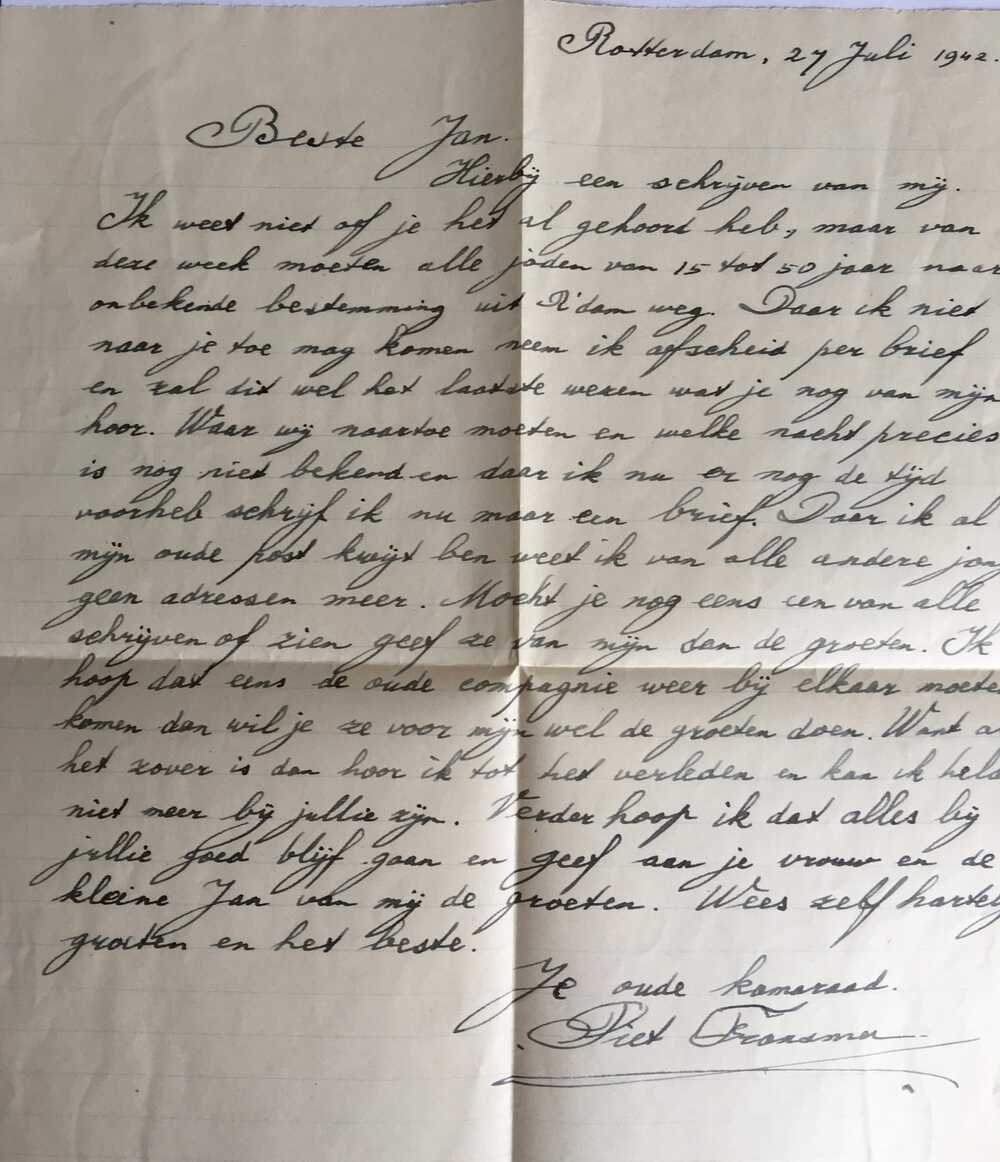 Rotterdam, 27 Juli 1942.
Beste Jan.
Hierbij een schrijven van mij.
Ik weet niet of je het al gehoord heb, maar van
deze week moeten alle joden van 15 tot 50 jaar naar
onbekende bestemming uit R'dam weg. Daar ik niet
naar je toe mag komen neem ik afscheid per brief
en zal dit wel het laatste wezen wat je nog van mijn
hoor. Waar wij naartoe moeten en welke nacht precies
is nog niet bekend en daar ik nu er nog de tijd
voorheb schrijf ik nu maar een brief. Daar ik al
mijn oude post kwijt ben weet ik van alle andere jon
geen adressen meer. Mocht je nog eens een van alle
schrijven of zien geef ze van mijn dan de groeten. Ik
hoop dat eens de oude compagnie weer bij elkaar moete
komen dan wil je ze voor mijn wel de groeten doen. Want a
het zover is dan hoor ik tot het verleden en kan ik hela
niet meer bij jullie zijn. Verder hoop ik dat alles bij
jullie goed blijf gaan en geef aan je vrouw en de
kleine Jan van mij de groeten. Wees zelf harte
groeten en het beste.
Je oude kamaraad.
Piet Fransman